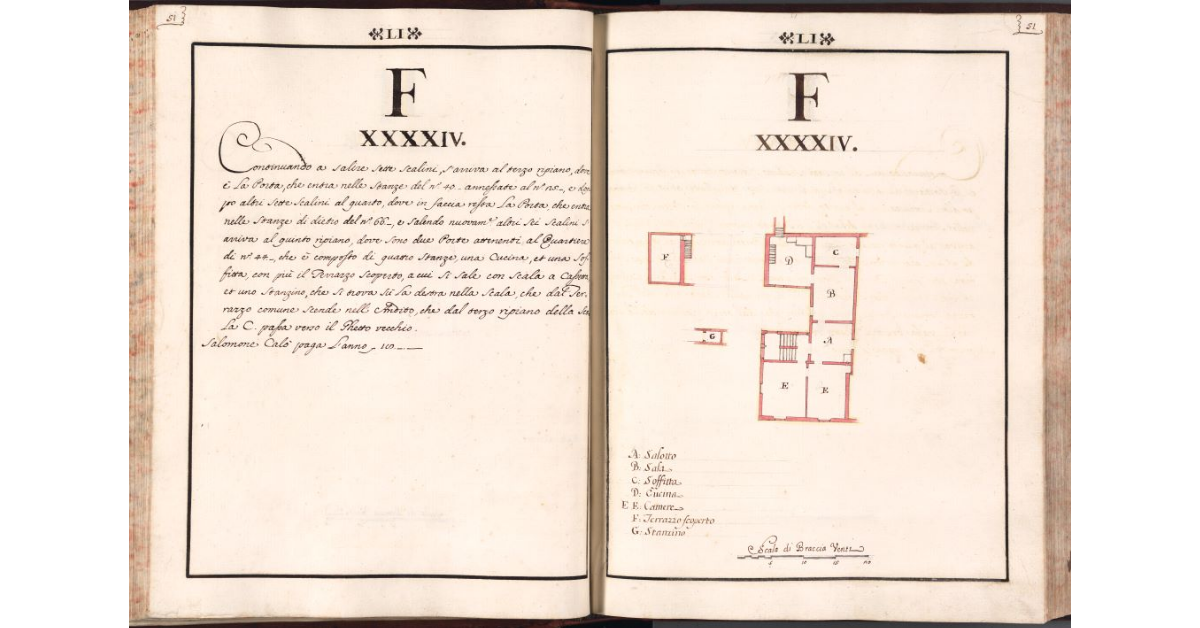 51
LI
F
XXXXIV.
Continuando a salire sette scalini, s'arriva al terzo ripiano, dove
è La Porta, che entra nelle stanze del n.° 40_ annessate al n.° 25_, e do
po altri sette scalini al quarto, dove in faccia resta La Porta, che entra
nelle stanze di dietro del n.° 66_, e salendo nuovam.e altri sei scalini s'
arriva al quinto ripiano, dove sono due Porte attenenti al Quartiere
di n.° 44_, che è composto di quattro stanze, una Cucina, et una Sof
fitta, con più il Terrazzo scoperto, a cui si sale con scala a
et uno stanzino, che si trova sù la destra nella scala, che dal Ter
razzo comune scende nell'Andito, che dal terzo ripiano della
La C. passa verso il Ghetto vecchio.
Salomone Calò paga L'anno_
51
LI
F
XXXXIV.
F
D
C
B
G
A
E
E
A: Salotto
B: Sala
C: Soffitta
D: Cucina
E E: Camere
F: Terrazzo scoperto
G: Stanzino
Scala di Braccia Venti
5 10 15 20